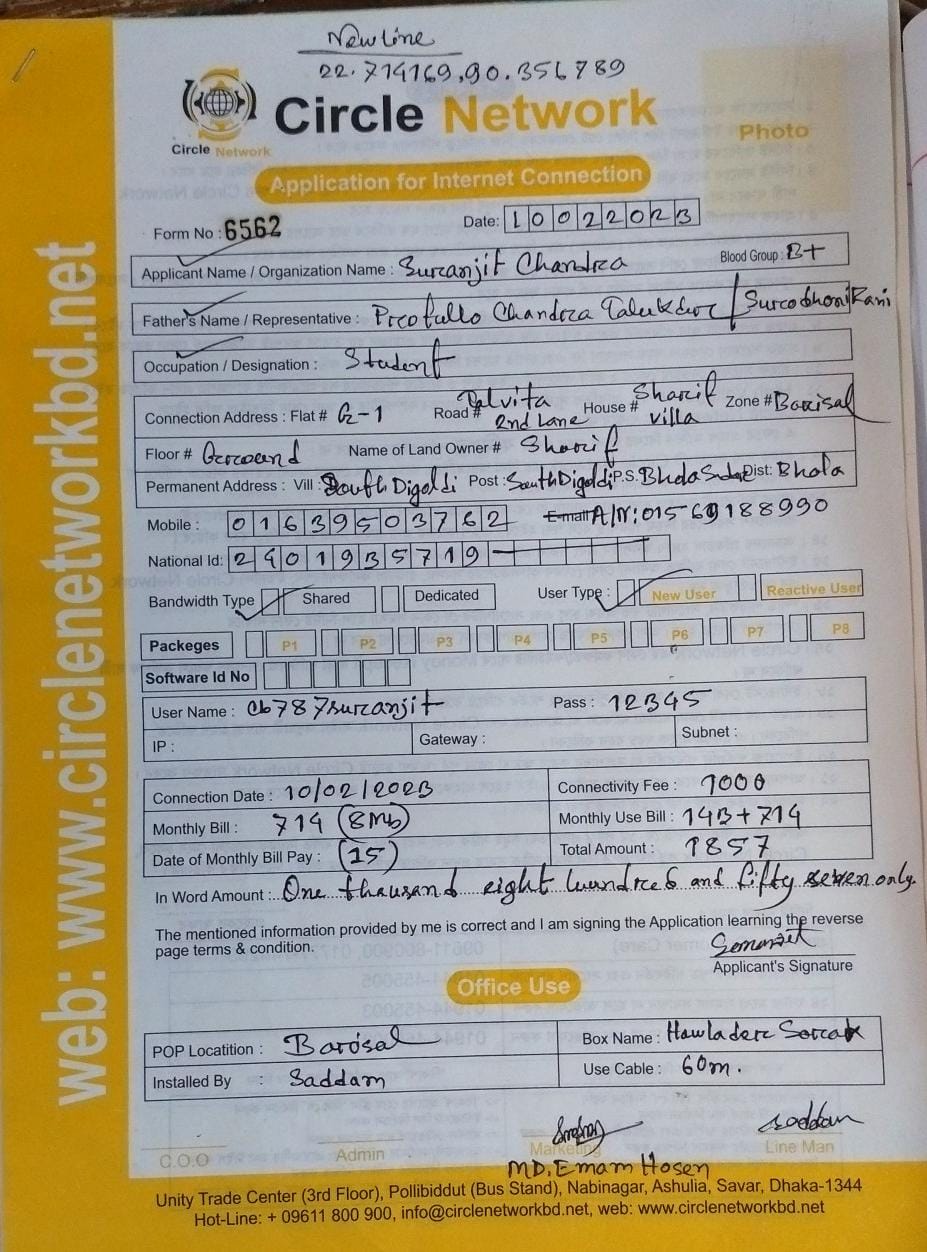 New Line
22.714169,90.356789
Circle Network
Circle Network
Photo
Application for Internet Connection
Form No : 6562 Date: 10022023
Applicant Name / Organization Name : Suranjit Chandra Blood Group : B+
Father's Name / Representative : Profullo Chandra Talukder / Surodhoni Rani
Occupation / Designation : Student
Connection Address : Flat # G-1 Road # 2nd Lane House # Sharif villa Zone # Barisal
Floor # Ground Name of Land Owner # Sharif
Permanent Address : Vill : South Digoldi Post : South Digoldi P.S. Bhola Sadar Dist: Bhola
Mobile : 01639503762 E-mail A/N: 01569188990
National Id: 2401935719
Bandwidth Type Shared Dedicated User Type : New User Reactive User
Packeges P1 P2 P3 P4 P5 P6 P7 P8
Software Id No
User Name : cb787suranjit Pass : 12345
IP : Gateway : Subnet :
Connection Date : 10/02/2023 Connectivity Fee : 1000
Monthly Bill : 714 (8Mb) Monthly Use Bill : 143+714
Date of Monthly Bill Pay : (15) Total Amount : 1857
In Word Amount : One thousand eight hundred and fifty seven only.
The mentioned information provided by me is correct and I am signing the Application learning the reverse
page terms & condition.
Applicant's Signature
Office Use
POP Locatition : Barisal Box Name : Hawlader Sorak
Installed By : Saddam Use Cable : 60m.
saddam
C.O.O Admin Marketing Line Man
MD. Emam Hosen
Unity Trade Center (3rd Floor), Pollibiddut (Bus Stand), Nabinagar, Ashulia, Savar, Dhaka-1344
Hot-Line: + 09611 800 900, info@circlenetworkbd.net, web: www.circlenetworkbd.net
web: www.circlenetworkbd.net